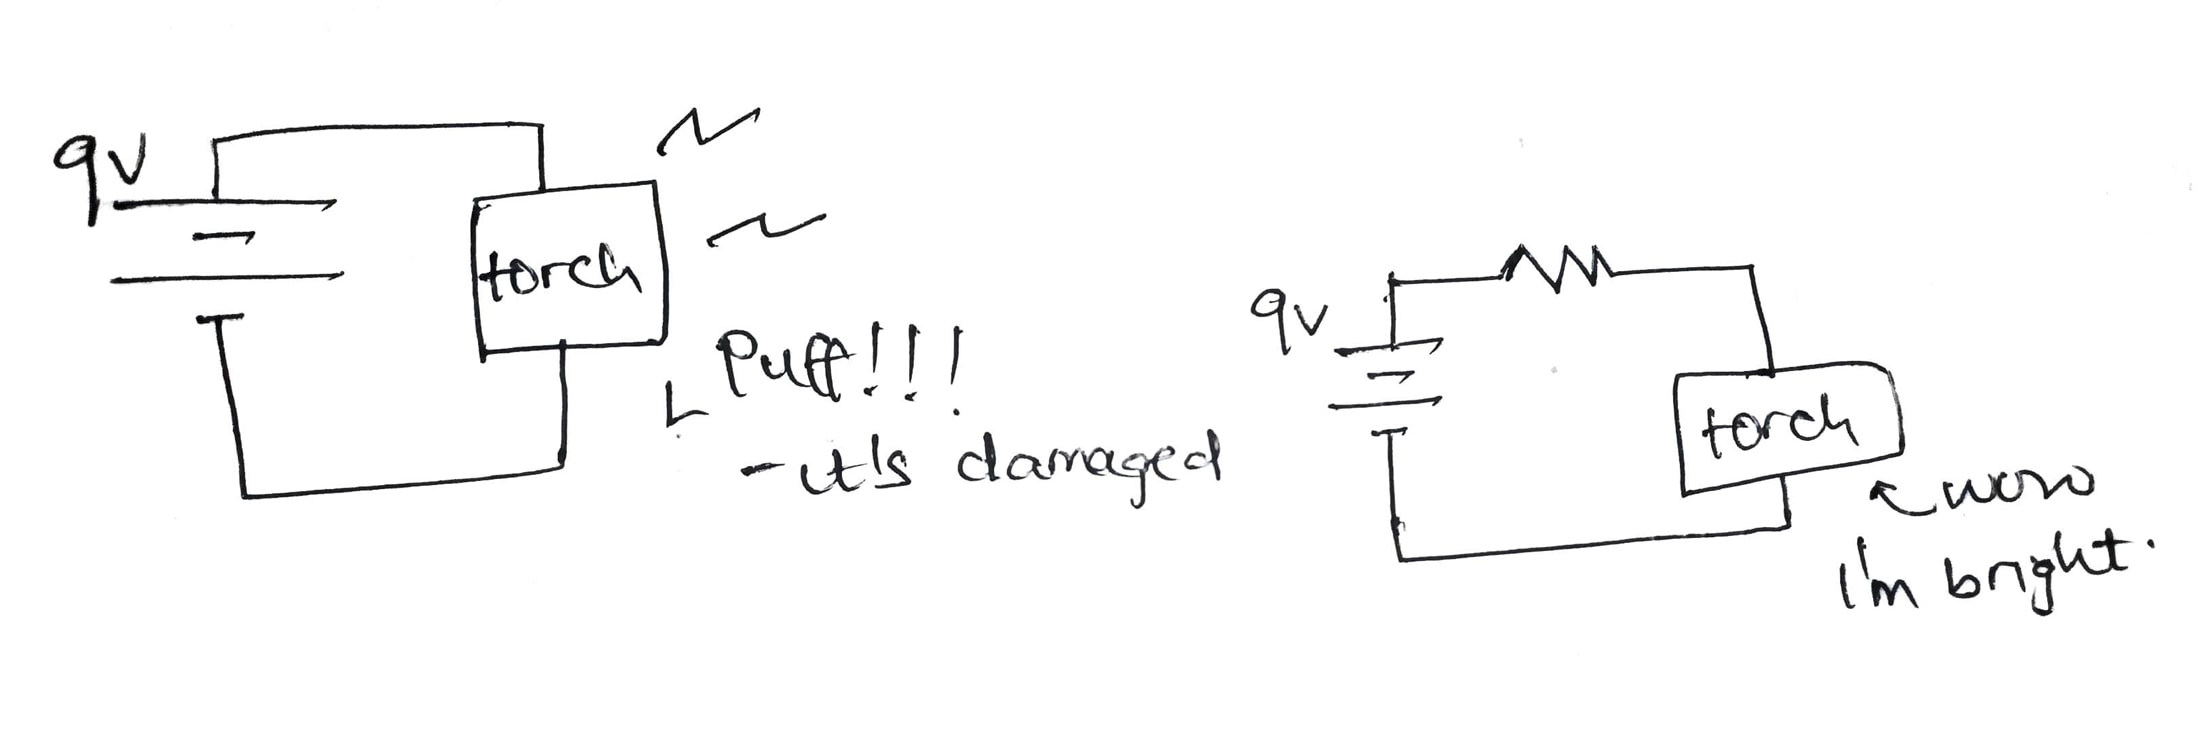 9v
torch
Puff!!!
- it's damaged
9v
torch
wow
I'm bright.